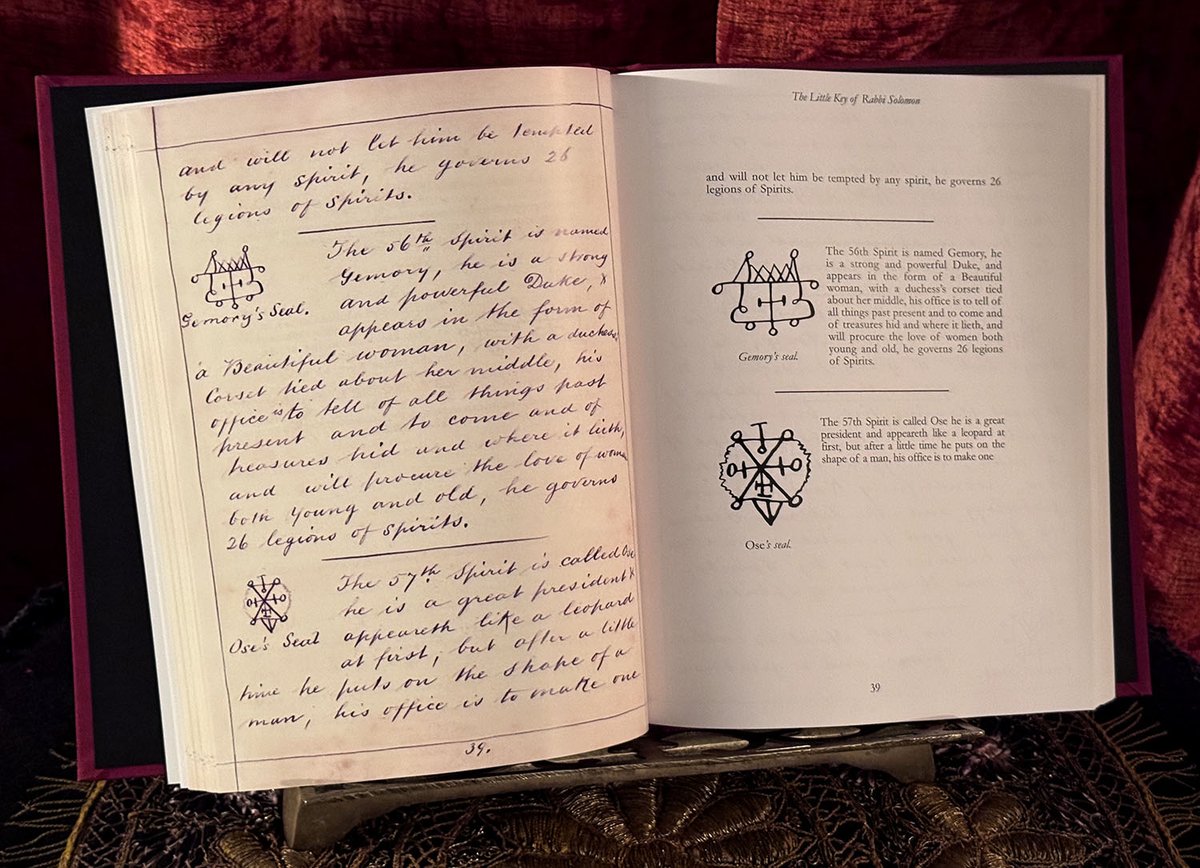 and will not let him be tempted
by any spirit, he governs 26
legions of spirits.
The 56th Spirit is named
Gemory, he is a strong
and powerful Duke, &
appears in the form of
Gemory's Seal.
a Beautiful woman, with a duchess
Corset tied about her middle, his
office is to tell of all things past
present and to come and of
treasures hid and where it lieth,
and will procure the love of women
both young and old, he governs
26 legions of spirits.
The 57th Spirit is called Ose
he is a great president &
appeareth like a leopard
at first, but after a little
Ose's Seal
time he puts on the shape of a
man, his office is to make one
39.
The Little Key of Rabbi Solomon
and will not let him be tempted by any spirit, he governs 26
legions of Spirits.
The 56th Spirit is named Gemory, he
is a strong and powerful Duke, and
appears in the form of a Beautiful
woman, with a duchess's corset tied
about her middle, his office is to tell of
all things past present and to come and
of treasures hid and where it lieth, and
will procure the love of women both
young and old, he governs 26 legions
of Spirits.
Gemory's seal.
The 57th Spirit is called Ose he is a great
president and appeareth like a leopard at
first, but after a little time he puts on the
shape of a man, his office is to make one
Ose's seal.
39